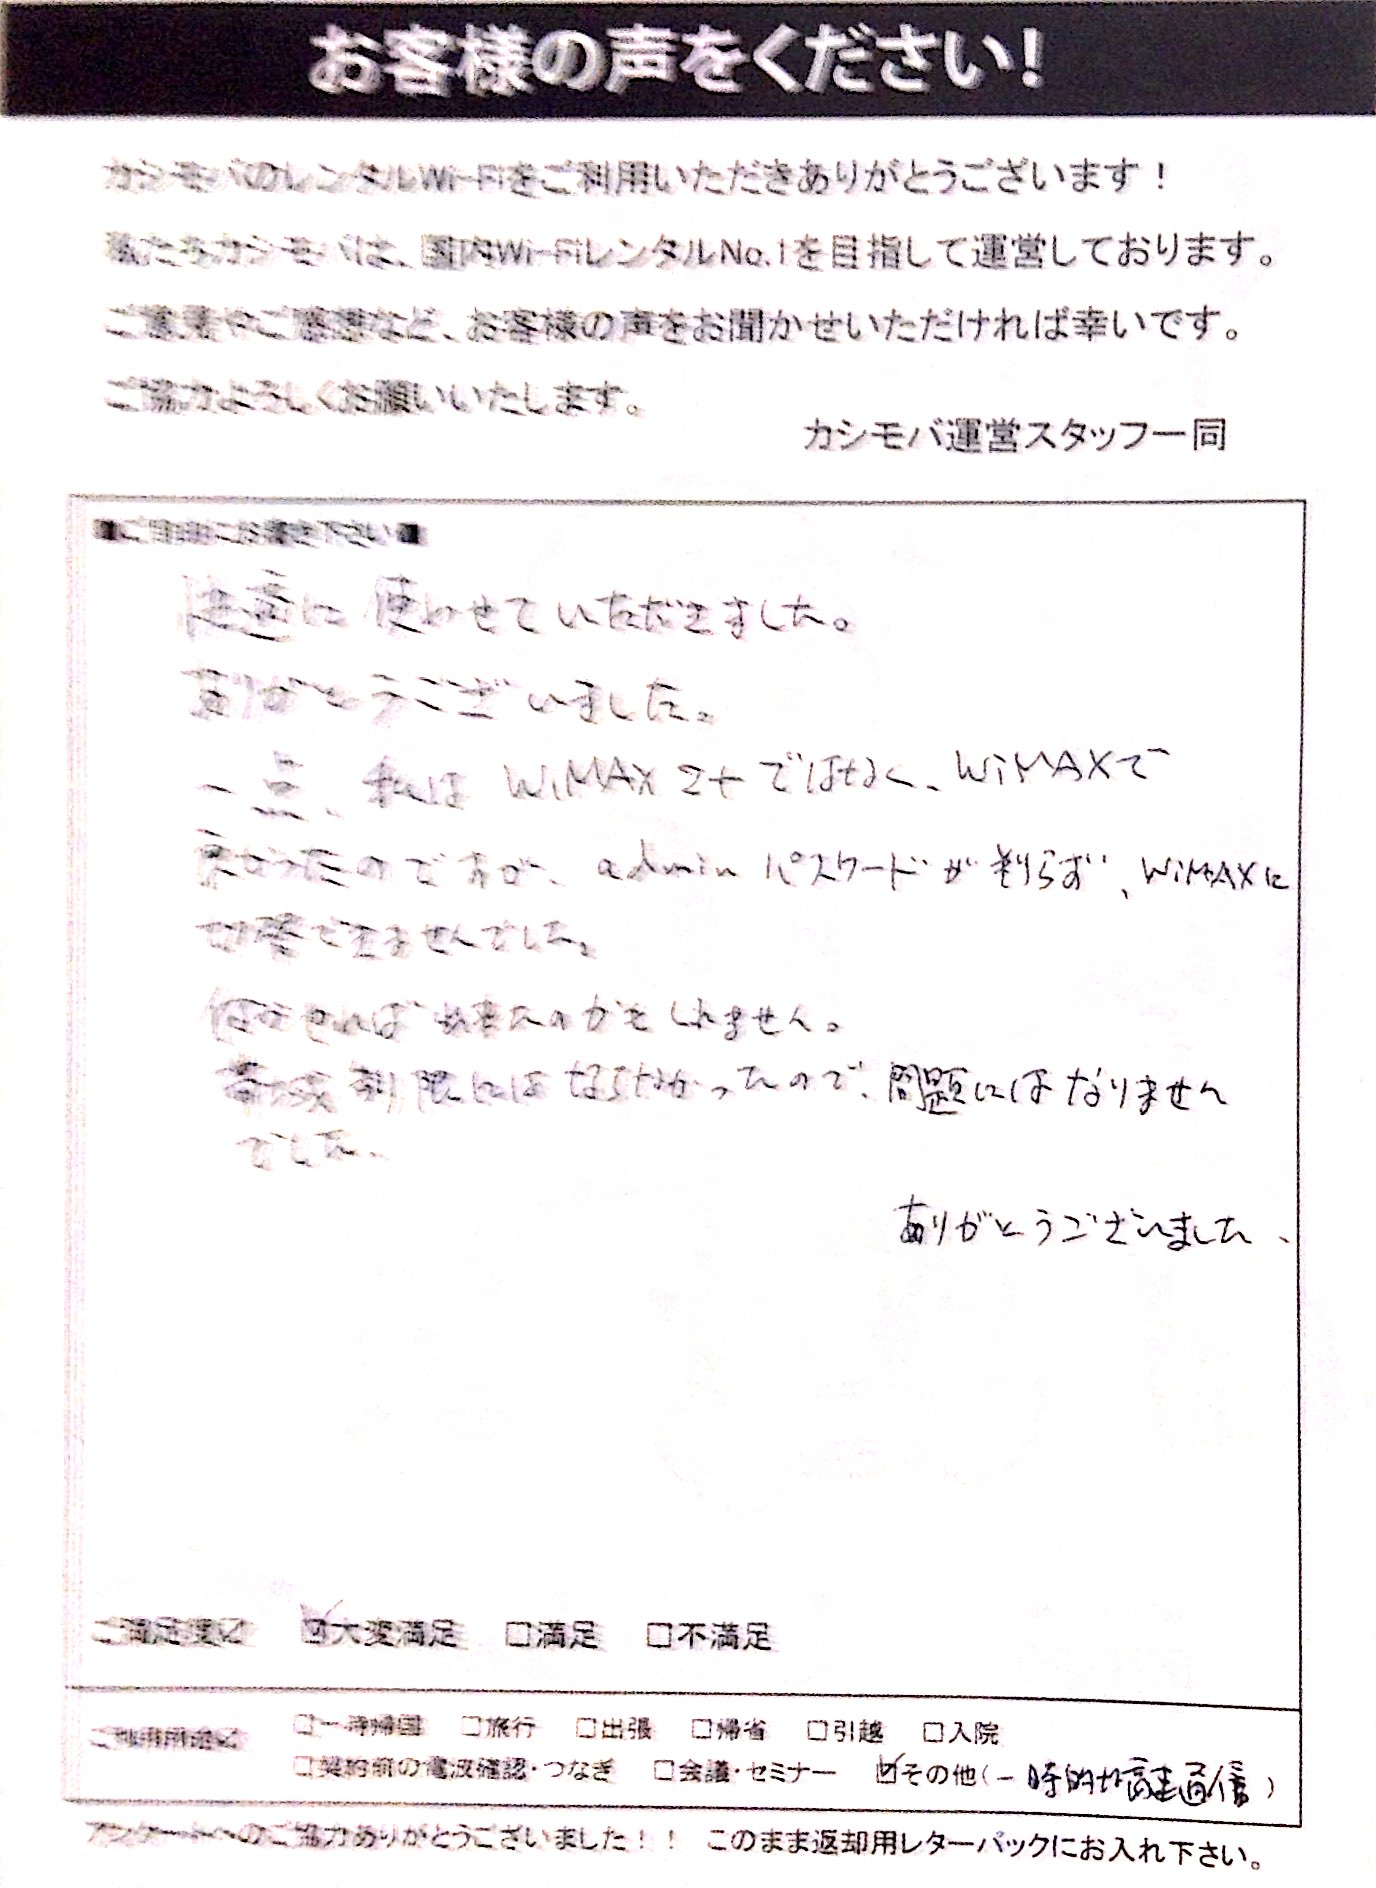 お客様の声をください!
カシモバのレンタルWi-Fiをご利用いただきありがとうございます！
私たちカシモバは、国内Wi-FiレンタルNo.1を目指して運営しております。
ご意見やご感想など、お客様の声をお聞かせいただければ幸いです。
ご協力よろしくお願いいたします。
カシモバ運営スタッフ一同
■ご自由にお書き下さい■
快適に使わせていただきました。
ありがとうございました。
一点、私は WiMAX 2+ ではなく、WiMAXで
良かったのですが、adminパスワードが判らず、WiMAXに
切替できませんでした。
何かすれば出来たのかもしれません。
帯域制限にはならなかったので、問題にはなりません
でした、
ありがとうございました、
ご満足度☑ ☑大変満足 □満足 □不満足
ご利用用途☑ □一時帰国 □旅行 □出張 □帰省 □引越 □入院
□契約前の電波確認・つなぎ □会議・セミナー ☑その他(一時的な高速通信)
アンケートへのご協力ありがとうございました！！ このまま返却用レターパックにお入れ下さい。